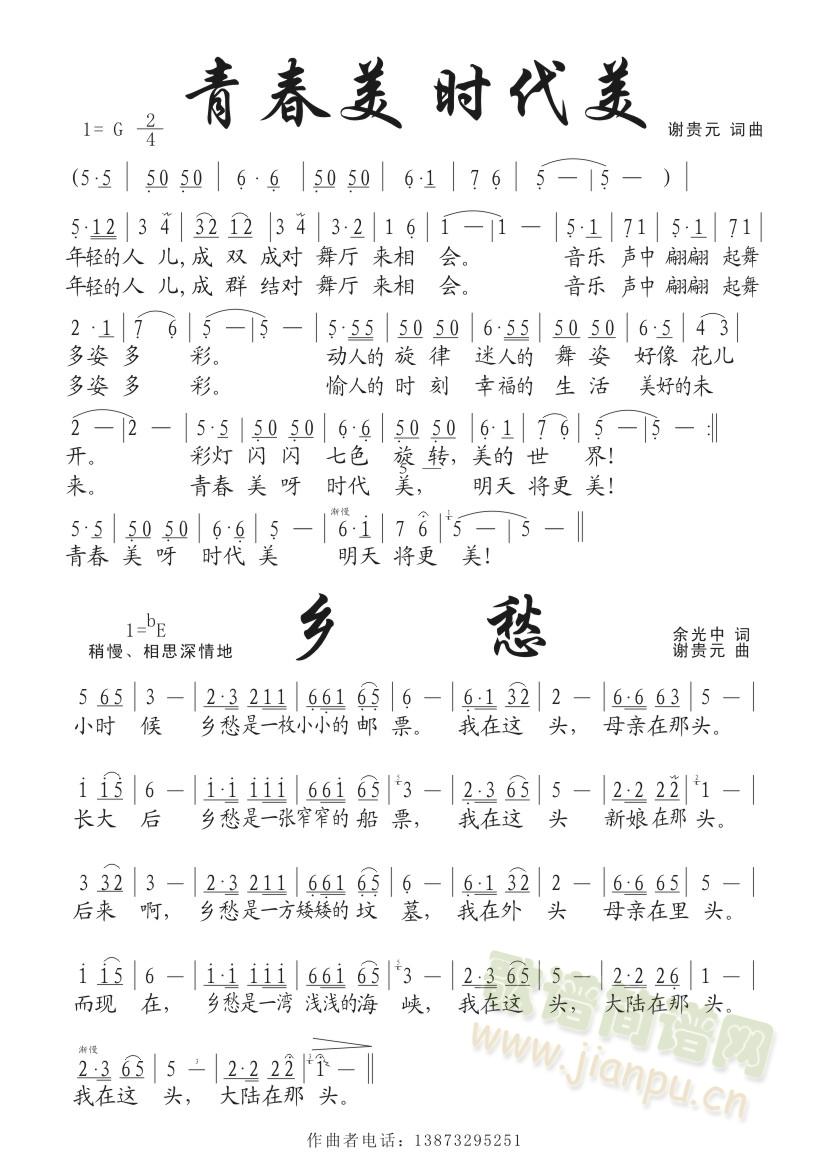 青春美 时代美
1= G 2/4
谢贵元 词曲
(5·5 | 50 50 | 6·6 | 50 50 | 6·1 | 7 6 | 5 — | 5 — ) |
5·12 | 3 4 | 32 12 | 3 4 | 3·2 | 1 6 | 1 — | 1 — | 5·1 | 71 | 5·1 | 71 |
年轻的人 儿,成 双 成对 舞厅 来相 会。 音乐 声中 翩翩 起舞
年轻的人 儿,成 群 结对 舞厅 来相 会。 音乐 声中 翩翩 起舞
2·1 | 7 6 | 5 — | 5 — | 5·55 | 50 50 | 6·55 | 50 50 | 6·5 | 4 3 |
多姿 多 彩。 动人的 旋 律 迷人的 舞 姿 好像 花儿
多姿 多 彩。 愉人的 时 刻 幸福的 生 活 美好的未
2 — | 2 — | 5·5 | 50 50 | 6·6 | 50 50 | 6·1 | 7 6 | 5 — | 5 — :||
开。 彩灯 闪 闪 七色 旋 转, 美的 世 界!
5 —
来。 青春 美 呀 时代 美, 明天 将更 美!
渐慢
5·5 | 50 50 | 6·6 | 5 — | 6·1 | 7 6 | 5 — | 5 — ||
青春 美 呀 时代 美 明天 将更 美!
乡 愁
1=bE
余光中 词
稍慢、相思深情地
谢贵元 曲
5 65 | 3 — | 2·3 211 | 661 65 | 6 — | 6·1 32 | 2 — | 6·6 63 | 5 — |
小时 候 乡愁是一枚小小的 邮 票。 我在这 头, 母亲在那头。
1 15 | 6 — | 1·1 111 | 661 65 | 3 — | 2·3 65 | 5 — | 2·2 22 | 1 — |
长大 后 乡愁是一张窄窄的 船 票, 我在这 头 新娘在那 头。
3 32 | 3 — | 2·3 211 | 661 65 | 6 — | 6·1 32 | 2 — | 6·6 65 | 5 — |
后来 啊, 乡愁是一方矮矮的 坟 墓, 我在外 头 母亲在里 头。
1 15 | 6 — | 1·1 111 | 661 65 | 3 — | 2·3 65 | 5 — | 2·2 26 | 1 — |
而现 在, 乡愁是一湾 浅浅的海 峡, 我在这 头, 大陆在那 头。
渐慢
2·3 65 | 5 — | 2·2 22 | 1 — ||
我在这 头, 大陆在那 头。
歌谱简谱网
www.jianpu.cn
作曲者电话：13873295251